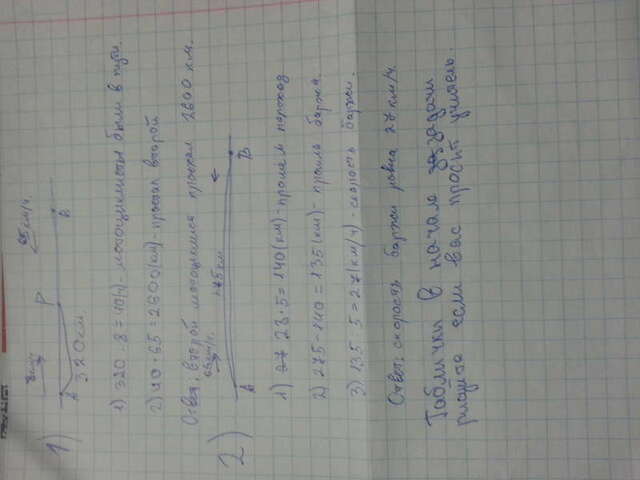 8км/ч 65 км/ч.
1)
А Р В
320 км.
1) 320 : 8 = 40(ч) - мотоциклисты были в пути.
2) 40 · 65 = 2600 (км) - проехал второй
Ответ: второй мотоциклист проехал 2600 км.
км/ч. 275 км
2)
А В
1) 28 · 5 = 140 (км) - прошел
2) 275 - 140 = 135 (км) - прошла баржа.
3) 135 : 5 = 27 (км/ч) - скорость баржи.
Ответ: скорость баржи равна 27 км/ч.
Таблички в начале задачи
рисуйте если вас просит учитель.